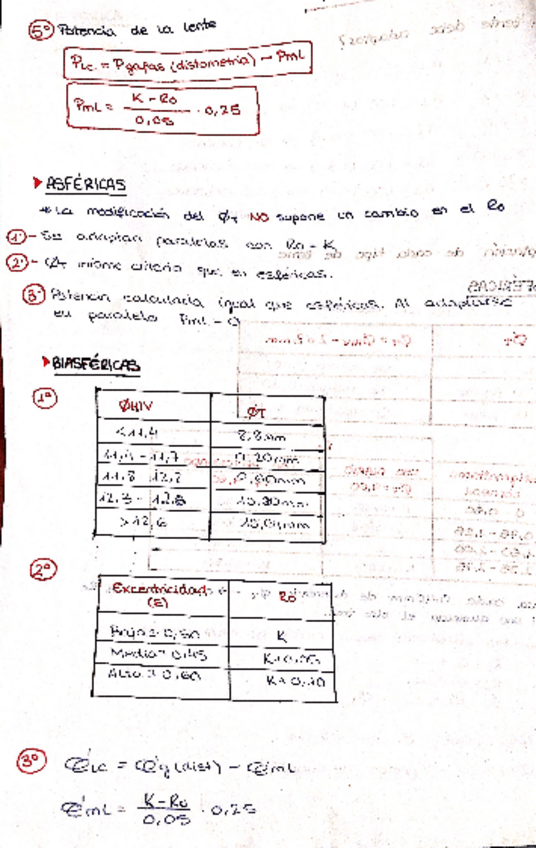 5º Potencia de la lente
PLC = Pgafas (distometría) - PML
PML = K - Ro / 0,05 · 0,25
ASFÉRICAS
* La modificación del ØT NO supone un cambio en el Ro
1º - Se adaptan paralelas con Ro = K
2º - ØT mismo criterio que en esféricas.
3º Potencia calculada igual que esféricas. Al adaptarse
en paralelo PML = 0
BIASFÉRICAS
1º
ØHIV ØT
<11,4
11,4 - 11,7
11,8 12,2
12,3 - 12,6
>12,6
2º
Excentricidad (E) Ro
Baja = 0,30 K
Media = 0,45 K+0,05
Alta = 0,60 K+0,10
3º LC = (dist) - ML
ML = K-Ro / 0,05 · 0,25